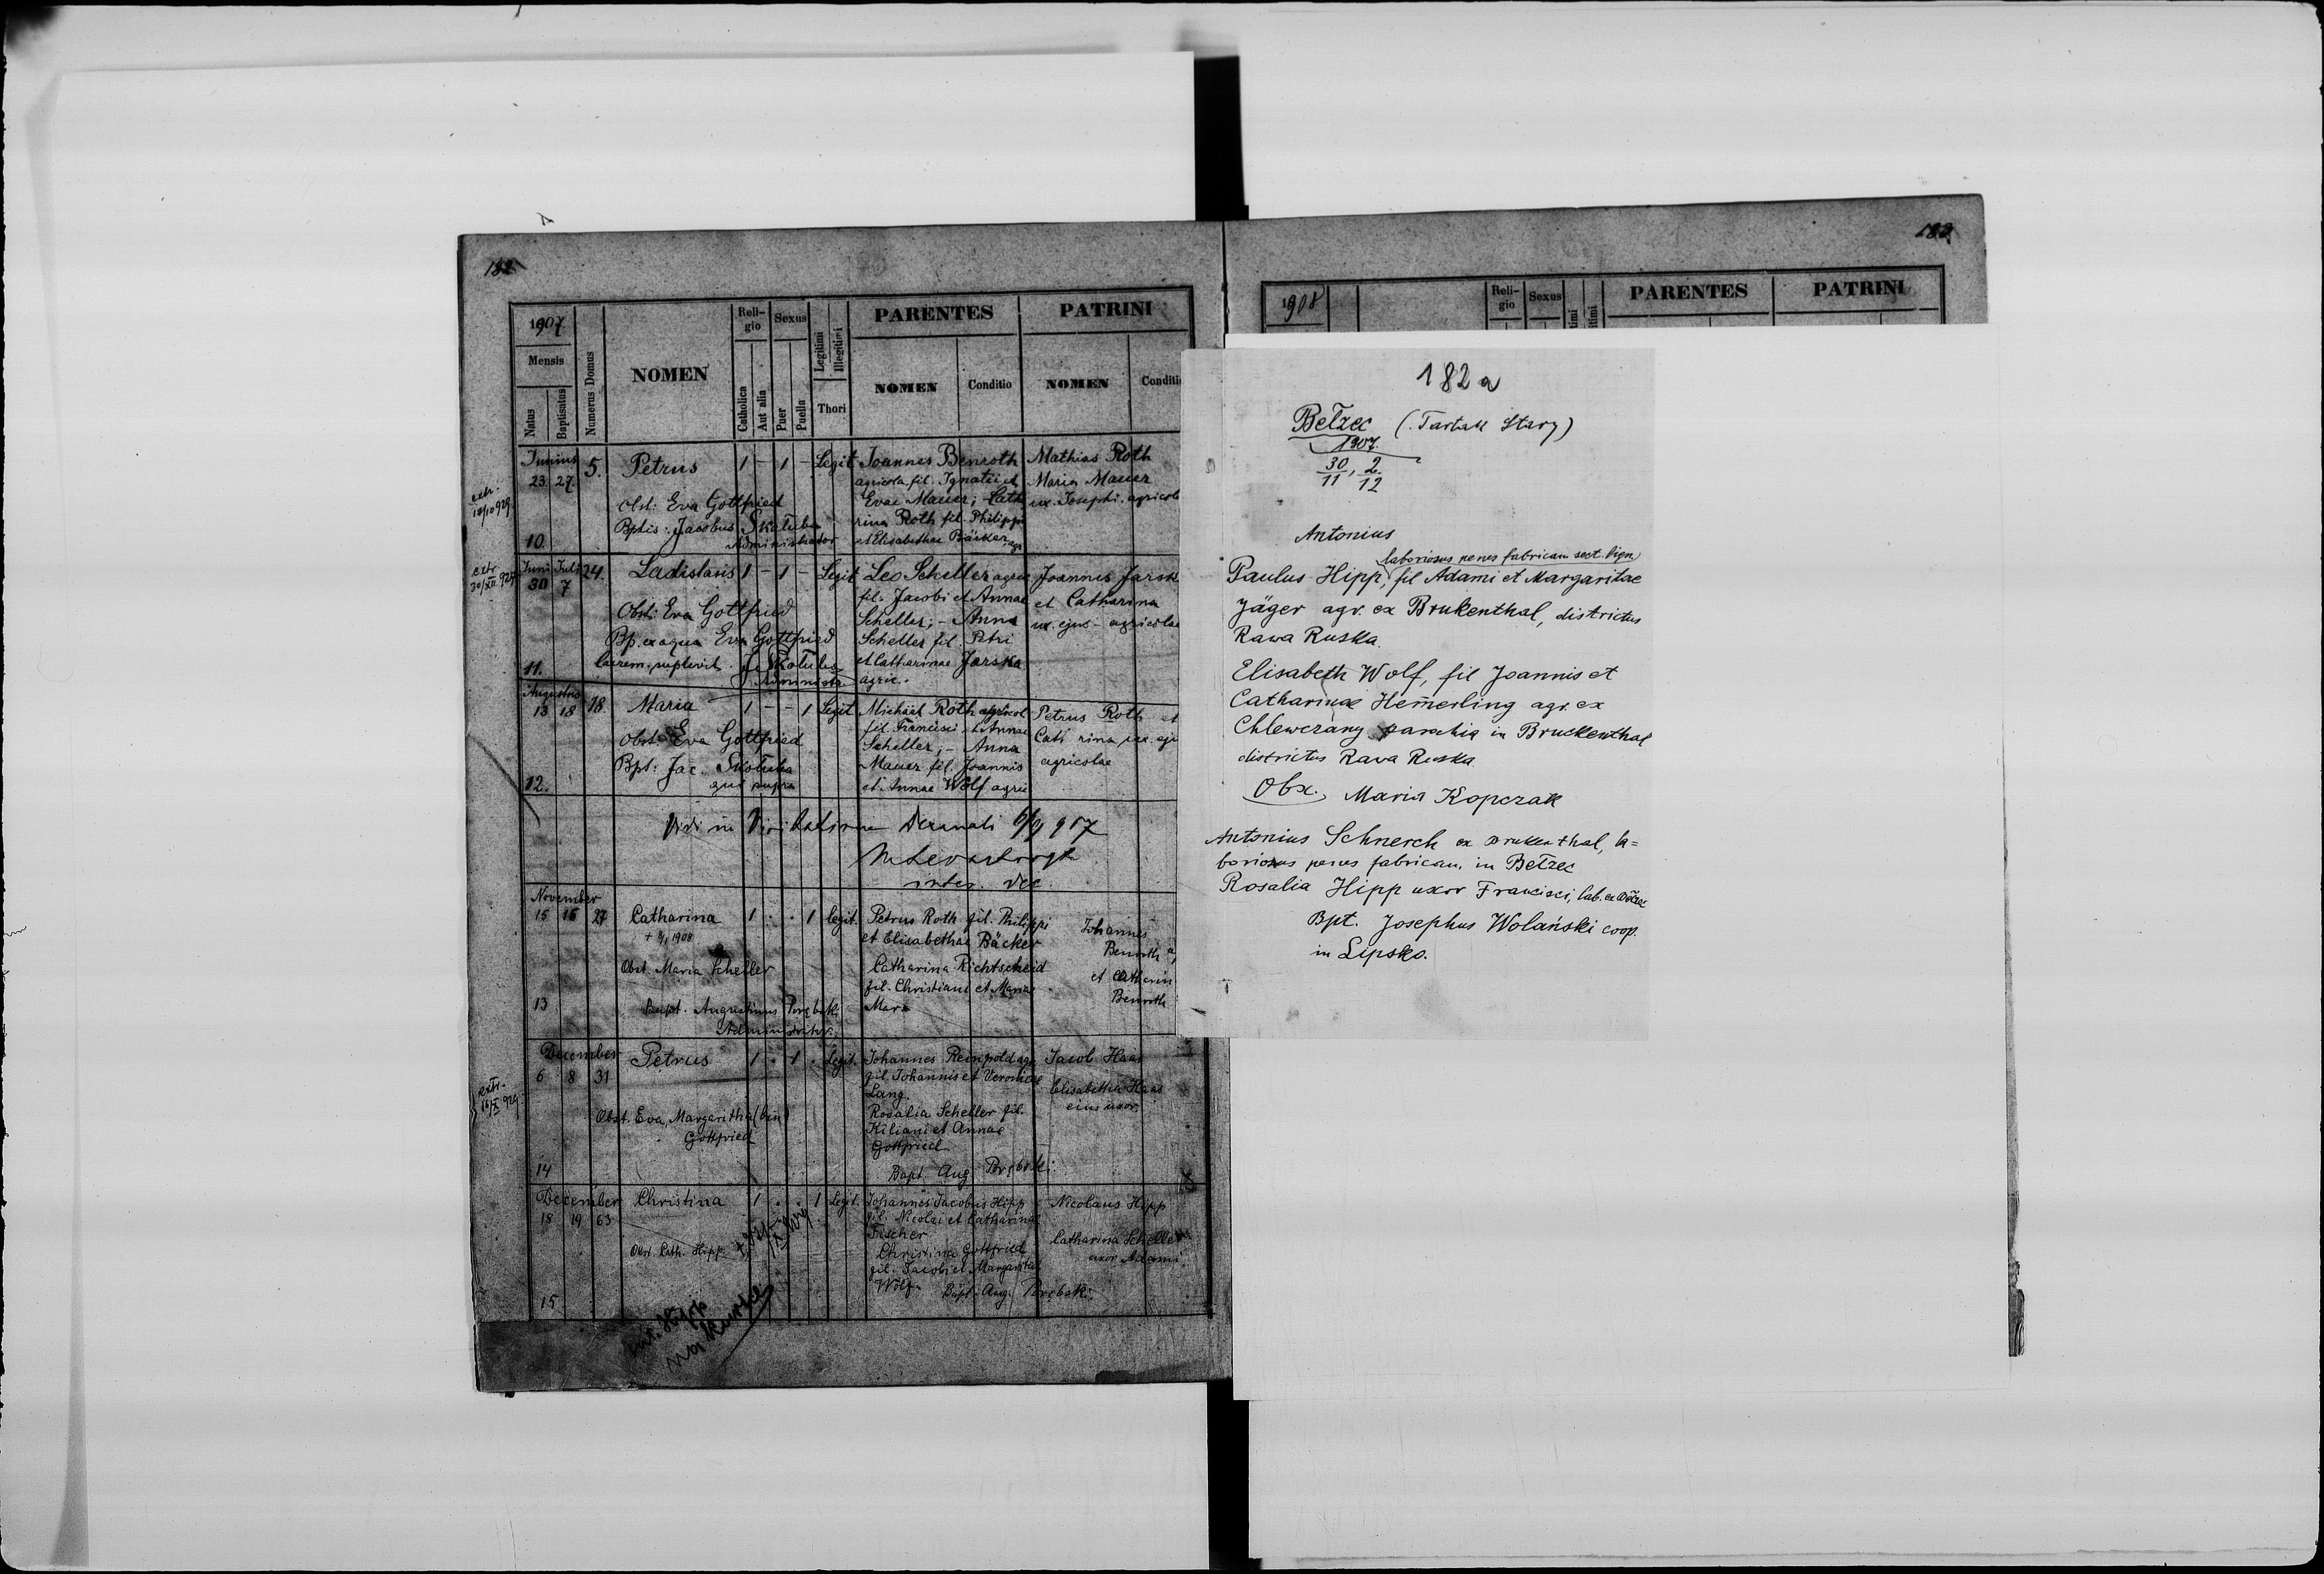 182
1907
Mensis
Natus
Baptisatus
Numerus Domus
NOMEN
Reli-
gio
Catholica
Aut alia
Sexus
Puer
Puella
Legitimi
Illegitimi
Thori
PARENTES
NOMEN
Conditio
PATRINI
NOMEN
Conditio
extr.
Junius
23. 27. 5. Petrus 1 – 1 – Legit
Obst: Eva Gottfried
Bptis: Jacobus Skałuba
Administrator
10.
Joannes Benroth
agricola fil. Ignatii et
Evae Mauer; Cath
rina Roth fil. Philippi
et Elisabethae Bäcker agr
Mathias Roth
Maria Mauer
ux. Josephi. agricola
extr.
30/XII 929
Juni Juli
30 7 24. Ladislaus 1 – 1 – Legit
Obst: Eva Gottfried
Bp. ex aqua Eva Gottfried
Caerem. suplevit J. Skałuba
Administr
11.
Leo Scheller agric
fil. Jacobi et Annae
Scheller; – Anna
Scheller fil Petri
et Catharinae Jarska
agric.
Joannes Jarsk
et Catharina
ux. ejus – agricolae
Augustus
13 18 18. Maria 1 – – 1 Legit
Obst: Eva Gottfried
Bpt: Jac. Skałuba
qui supra
12.
Michäel Roth agricol
fil. Francisci et Annae
Scheller; – Anna
Mauer fil. Joannis
et Annae Wolf agric
Petrus Roth et
Cath rina, ux. eju
agricolae
Vidi in Visitatione Decanali 6/9 907
inter. dec
November
15 16 27 Catharina 1 . . 1 legit.
+ 8/1 1908
Obst. Maria Scheller
Bapt. Augustinus Porębski
Administrator.
13
Petrus Roth fil. Philippi
et Elisabethae Bäcker
Catharina Richtscheid
fil. Christiani et Mariae
Marx
Johannes
Benroth
et Catharin
Benroth
extr.
December
6 8 31 Petrus 1 . 1 . Legit.
Obst. Eva Margaritha (bin)
Gottfried
14
Johannes Reinpold agr
fil. Johannis et Veronicae
Lang.
Rosalia Scheller fil.
Kiliani et Annae
Gottfried
Bapt. Aug Porębski
Jacob Haas
Elisabetha Haas
eius uxor
December
18 19 63 Christina 1 . . 1 Legit.
Obst. Cath. Hipp.
15
Johannes Jacobus Hipp
fil. Nicolai et Catharinae
Fischer
Christina Gottfried
fil. Jacobi et Margaritae
Wolf.
Bapt. Aug. Porębski
Nicolaus Hipp
Catharina Scheller
uxor Adami
183
1908
Reli-
gio
Sexus
PARENTES
PATRINI
182 a
Bełzec (Tartak Stary)
1907.
30/11, 2/12
Antonius
laboriosus penes fabricam sect. lign.
Paulus Hipp, fil Adami et Margaritae
Jäger agr. ex Brukenthal, districtus
Rawa Ruska.
Elisabeth Wolf, fil Joannis et
Catharinae Hem̄erling agr. ex
Chlewczany parochia in Bruckenthal
districtus Rawa Ruska.
Obx. Maria Kopczak
Antonius Schnerch ex Brukenthal, la=
boriosus penes fabricam, in Bełzec
Rosalia Hipp uxor Francisci, lab. ex Bełzec
Bpt. Josephus Wolański coop.
in Lipsko.